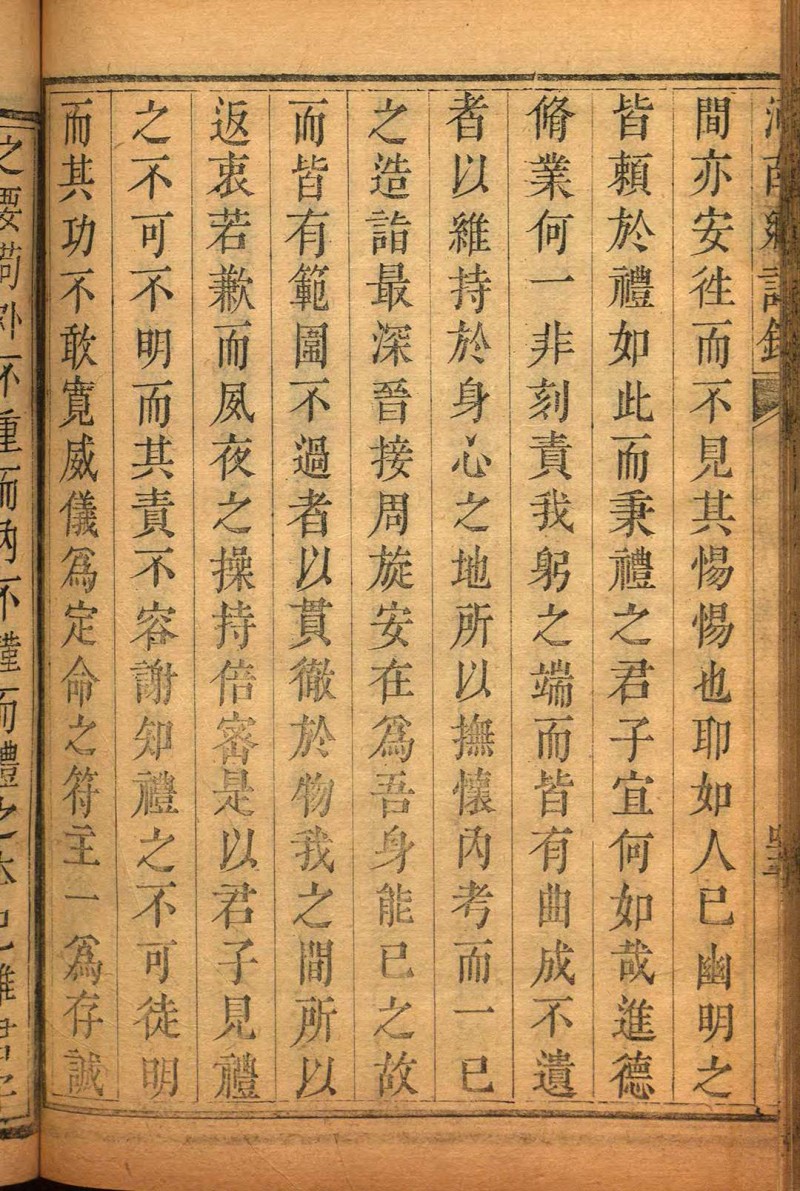 河南鄉試錄
間亦安徃而不見其惕惕也耶如人已幽明之
皆頼於禮如此而秉禮之君子宜何如哉進德
脩業何一非刻責我躬之端而皆有曲成不遺
者以維持於身心之地所以撫懷內考而一已
之造詣最深晉接周旋安在爲吾身能已之故
而皆有範圍不過者以貫徹於物我之間所以
返衷若歉而夙夜之操持倍密是以君子見禮
之不可不明而其責不容謝知禮之不可徒明
而其功不敢寬威儀爲定命之符主一爲存誠
之要苟外不重而內不謹而禮之